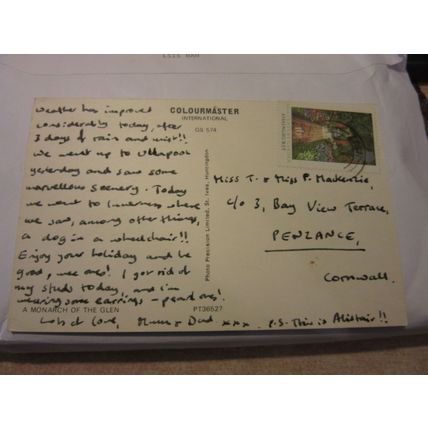 weather has improved
considerably today, after
3 days of rain and mist!!
We went up to Ullapool
yesterday and saw some
marvellous scenery. Today
we went to Inverness where
we saw, among other things,
a dog in a wheelchair!!
Enjoy your holiday and be
good, wee ones! I got rid of
my studs today, and i'm
wearing some earrings - pearl ones!
Lots of love, Mum & Dad xxx. P.S. This is Alistair!!
COLOURMASTER
INTERNATIONAL
GS 574
Photo Precision Limited, St. Ives, Huntingdon
Miss T. & Miss P. Mackenzie,
c/o 3, Bay View Terrace,
PENZANCE,
Cornwall.
A MONARCH OF THE GLEN
PT36527